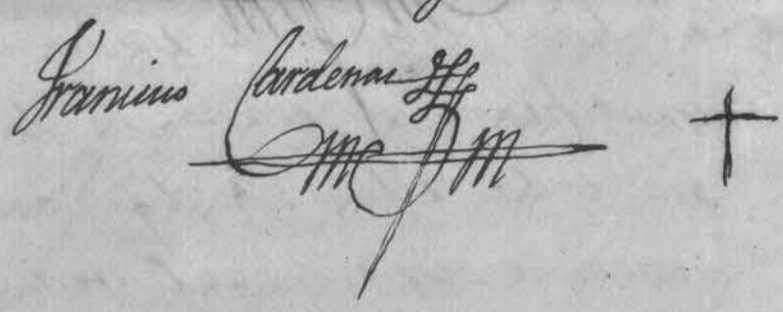 Francisco Cardenas